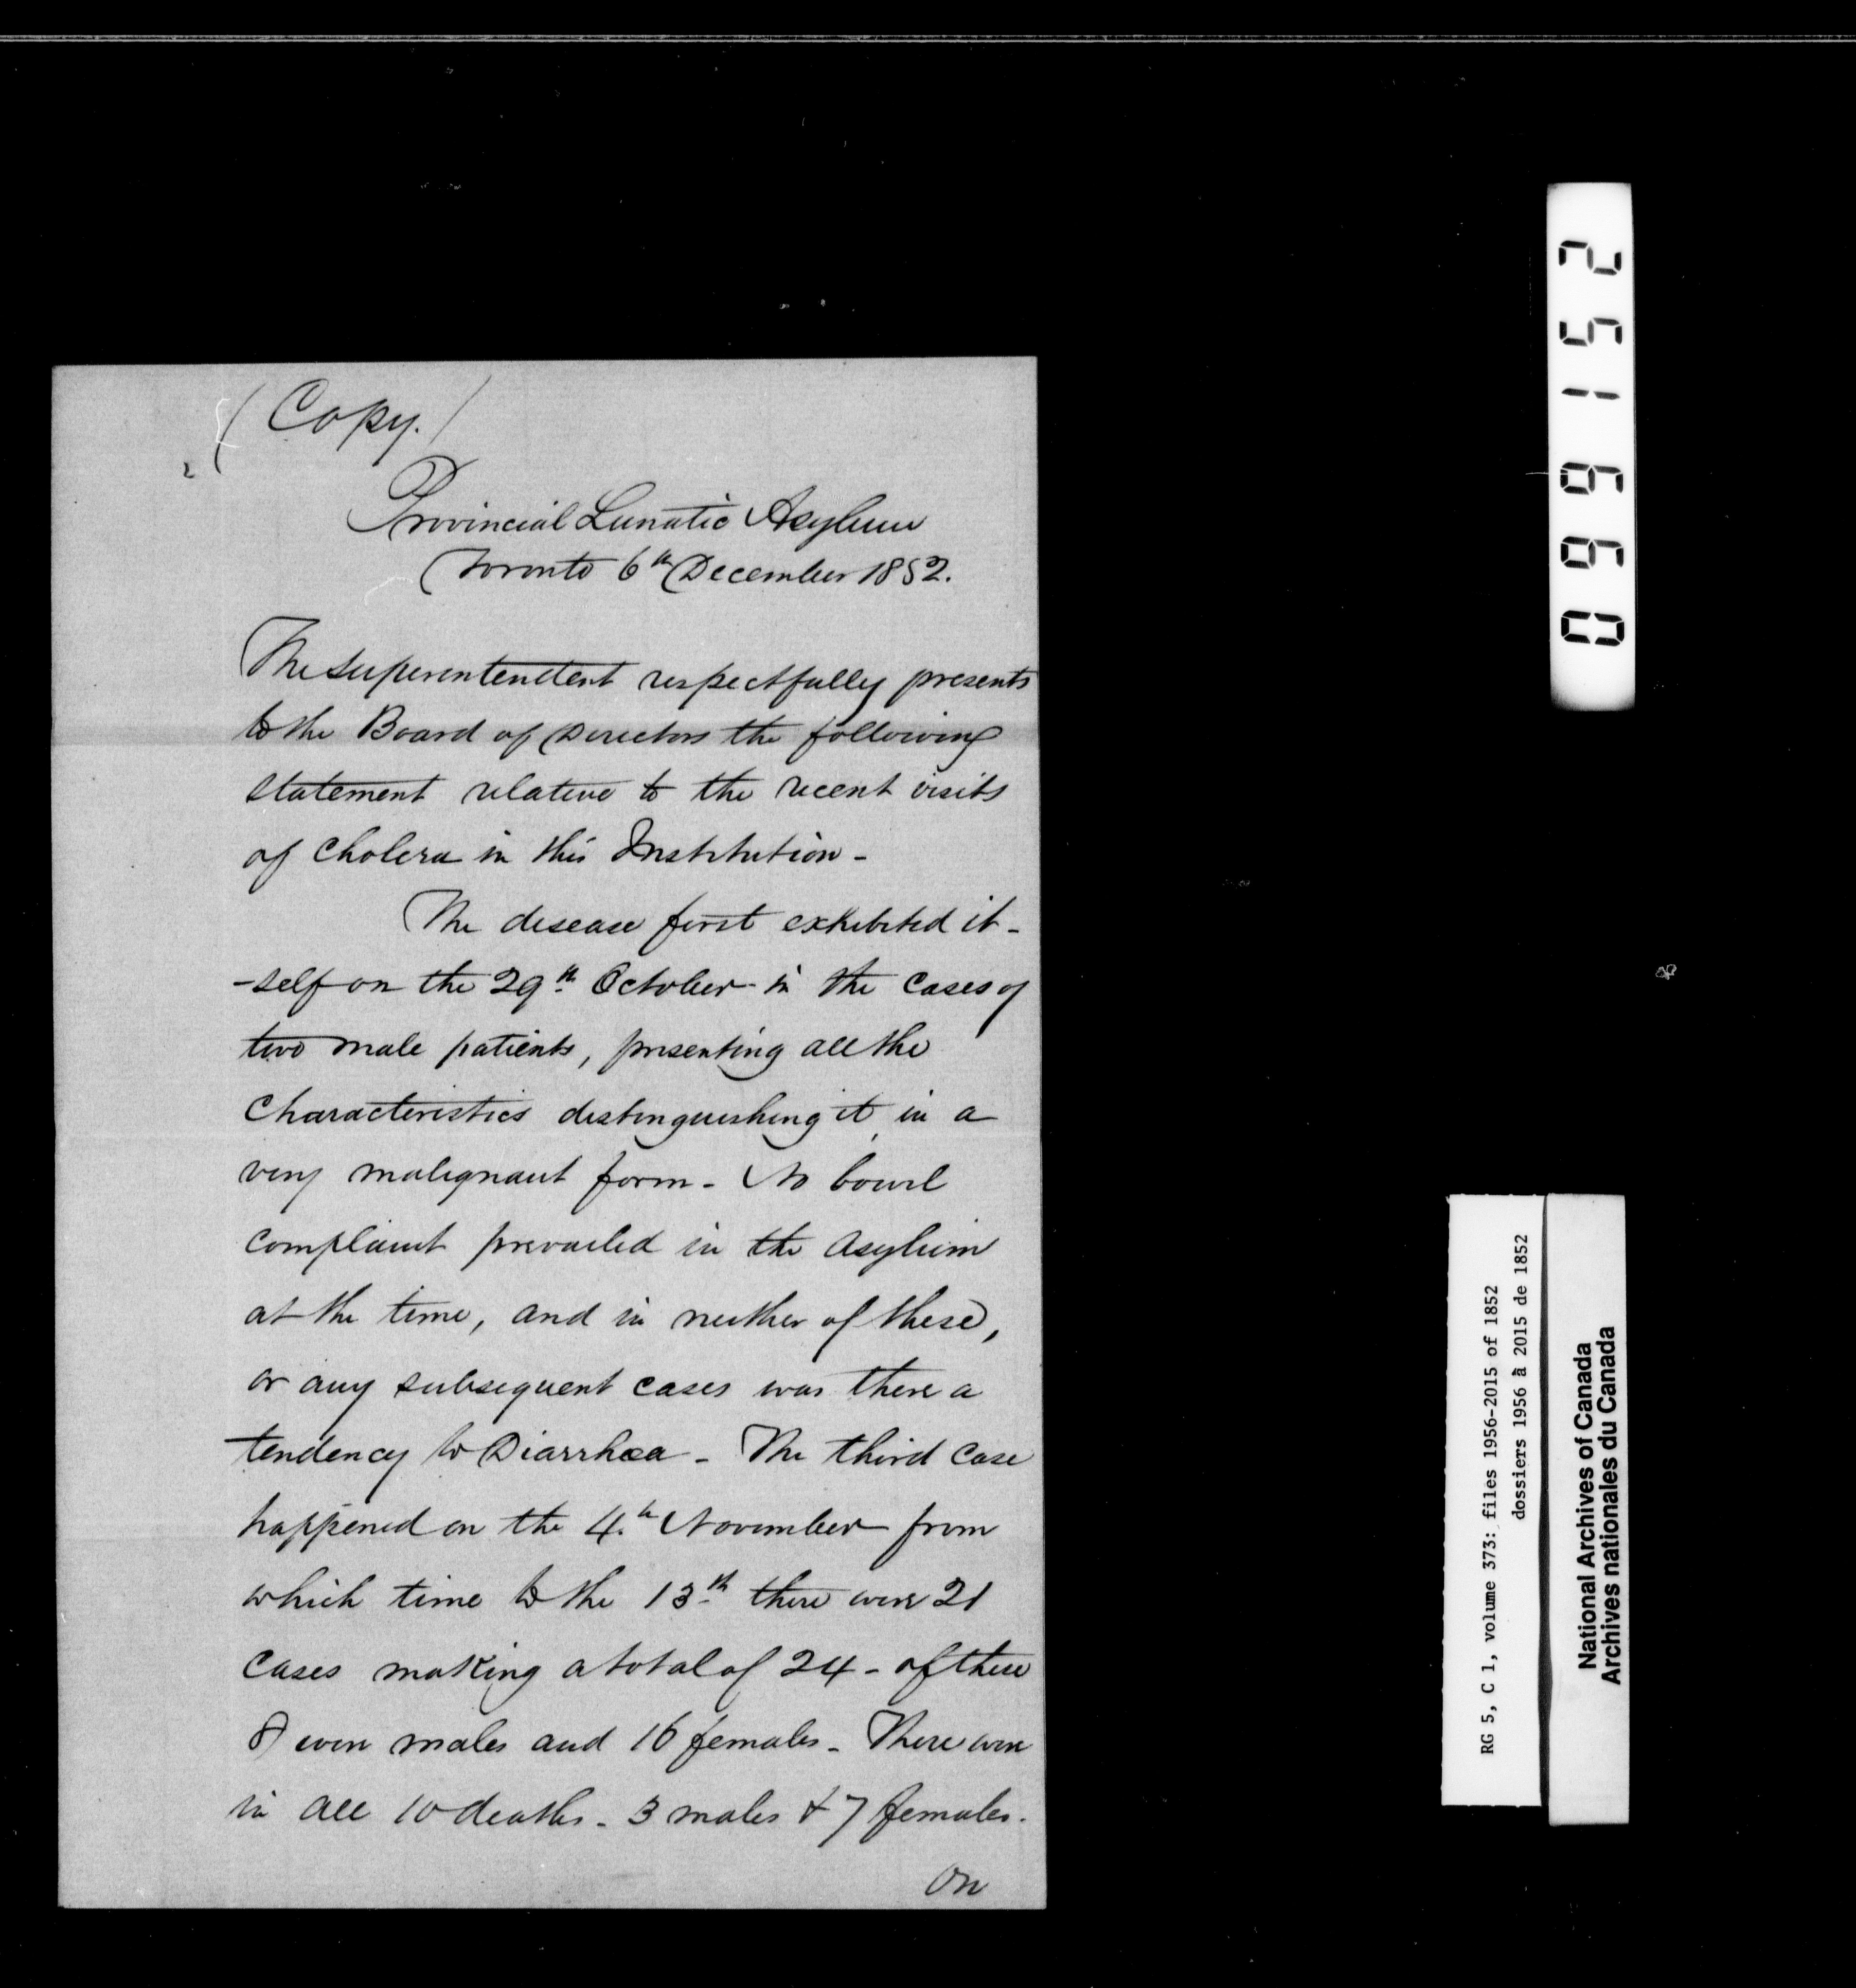 (Copy.)
Provincial Lunatic Asylum
Toronto 6th December 1852.
The Superentendent respectfully presents
to the Board of Directors the following
statement relative to the recent visits
of Cholera in this Institution -
The disease first exhibited it-
-self on the 29th October in the Cases of
two male patients, presenting all the
Characteristics distinguishing it, in a
very malignant form - No bowel
Complaint prevailed in the Asylum
at the time, and in neither of these,
or any subsequent cases was there a
tendency to Diarrhœa - The third Case
happened on the 4th November from
which time to the 13th there were 21
Cases making a total of 24 - of these
8 were males and 16 females - There were
in all 10 deaths - 3 males & 7 females.
On
096152
RG 5, C 1, volume 373: files 1956-2015 of 1852
dossiers 1956 à 2015 de 1852
National Archives of Canada
Archives nationales du Canada